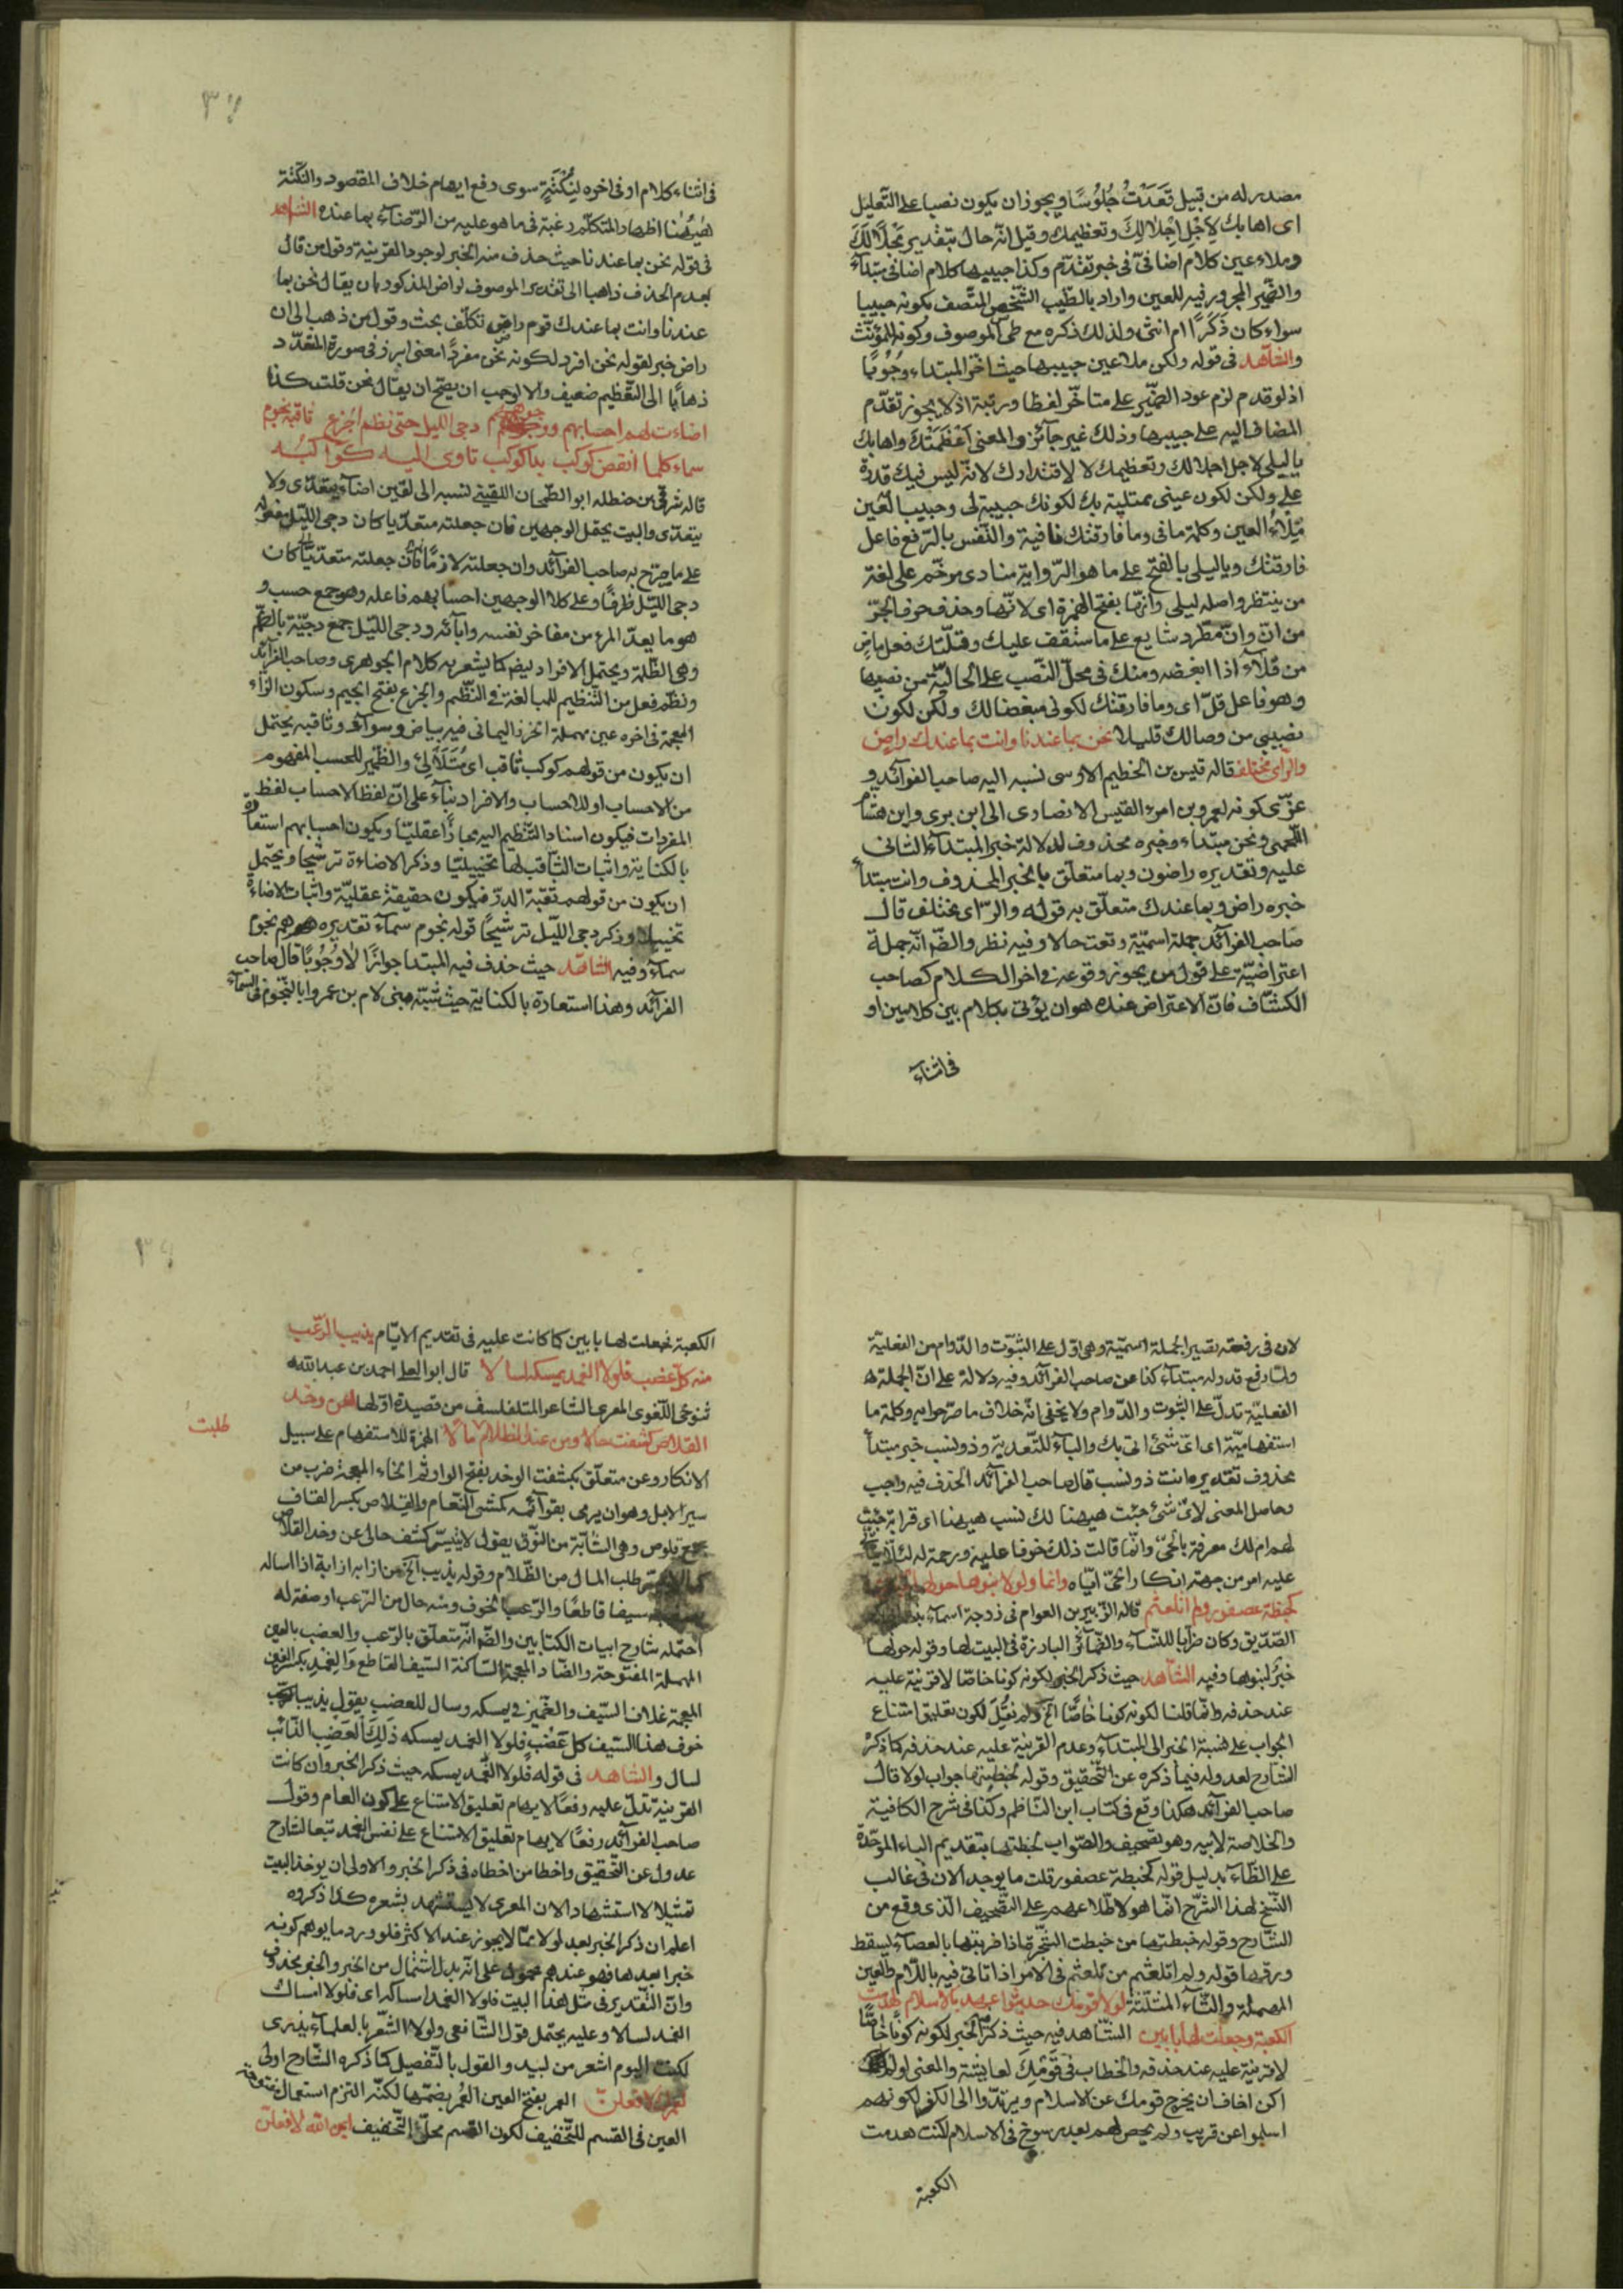 مصدر له من قبيل قعدت جلوسا ويجوز ان يكون نصبا على التعليل
اى اهابك لاجل اجلالك وتعظيمك وقيل انه حال بتقدير مجلا لك
وملاء عين كلام اضافى فى خبر تقدم وكذا حبيبها كلام اضافى مبتدأ
والضمير المجرور فيه للعين واراد بالطيب الشخص المتصف بكونه حبيبا
سواء كان ذكرا ام انثى ولذلك ذكره مع طى الموصوف وكونه للمؤنث
والشاهد فى قوله ولكن ملاء عين حبيبها حيث اخر المبتداء وجوبا
اذ لو قدم لزم عود الضمير على متاخر لفظا ورتبة اذ لا يجوز تقدم
المضاف اليه على حبيبها وذلك غير جائز والمعنى اعظمتك واهابك
يا ليلى لاجل اجلالك وتعظيمك لا لاقتدارك لانه ليس فيك قدرة
على ولكن لكون عينى ممتلية بك لكونك حبيبة لى وحبيب العين
ملاء العين وكلمة ما فى وما فارقتك نافية والنفس بالرفع فاعل
فارقتك ويا ليلى بالفتح على ما هو الرواية منادى مرخم على لغة
من ينتظر واصله ليلى وانها بفتح الهمزة اى لانها وحذف حرف الجر
من ان وان مطرد شايع على ما ستقف عليك وقلتك فعل ماض
من قلاء اذا ابغضه ومنك فى محل النصب على الحالية من نصيبها
وهو فاعل قل اى وما فارقتك لكونى مبغضا لك ولكن لكون
نصيبى من وصالك قليلا نحن بما عندنا وانت بما عندك راض
والراى مختلف قاله قيس بن الخطيم الاوسى نسبه اليه صاحب الفرائد و
عزى كونه لعمرو بن امرء القيس الانصارى الى ابن برى وابن هشام
اللخمى ونحن مبتداء وخبره محذوف لدلالة خبر المبتداء الثانى
عليه وتقديره راضون وبما متعلق بالخبر المحذوف وانت مبتدأ
خبره راض وبما عندك متعلق به قوله والراى مختلف قال
صاحب الفرائد جملة اسمية وقعت حالا وفيه نظر والضم انه جملة
اعتراضية على قول من يجوز وقوعه فى اخر الكلام كصاحب
الكشاف فان الاعتراض عنده هو ان يؤتى بكلام بين كلامين او
فى اثناء
فى اثناء كلام او فى اخره لنكتة سوى دفع ايهام خلاف المقصود والنكتة
ههنا اظهار المتكلم رغبة فى ما هو عليه من الرضاء بما عنده الشاهد
فى قوله نحن بما عندنا حيث حذف منه الخبر لوجود القرينة وقول من قال
بعدم الحذف ذاهبا الى تقدير الموصوف لراض المذكور بان يقال نحن بما
عندنا وانت بما عندك قوم راض تكلف بحث وقول من ذهب الى ان
راض خبر لقوله نحن افرد لكونه نحن مفردا معنى ابرز فى صورة المتعدد
ذهابا الى التعظيم ضعيف والا لوجب ان يصح ان يقال نحن قلت كذا
اضاءت لهم احسابهم ووجوههم دجى الليل حتى نظم الجزع ثاقبه نجوم
سماء كلما انقض كوكب بدا كوكب تاوى اليه كواكبه
قاله شرقى بن حنظله ابو الطمحان القينى نسبه الى لقين اضاء يتعدى ولا
يتعدى والبيت يحتمل الوجهين فان جعلته متعديا كان دجى الليل مفعوله
على ما صرح به صاحب الفرائد وان جعلته لازما كان
دجى الليل ظرفا وعلى كلا الوجهين احسابهم فاعله وهو جمع حسب و
هو ما يعد المرء من مفاخر نفسه وابائه ودجى الليل جمع دجية بالضم
وهى الظلمة ويحتمل الافراد ايض كما يشعر به كلام الجوهرى وصاحب الفرائد
ونظم فعل من التنظيم للمبالغة فى النظم والجزع بفتح الجيم وسكون الزاء
المعجمة فى اخره عين مهملة الخرز اليمانى فيه بياض وسواد وثاقبه يحتمل
ان يكون من قولهم كوكب ثاقب اى متلألئ والضمير للحسب المفهوم
من الاحساب او للاحساب والافراد بناء على ان لفظ الاحساب لفظ
المفردات فيكون اسناد التنظيم اليه مجازا عقليا ويكون احسابهم استعارة
بالكناية واثبات الثاقب لها تخييليا وذكر الاضاءة ترشيحا ويحتمل
ان يكون من قولهم ثقبة الدر فيكون حقيقة عقلية واثبات الاضاءة
تخييلا وذكر دجى الليل ترشيحا قوله نجوم سماء تقديره هم نجوم
سماء وفيه الشاهد حيث حذف فيه المبتدا جوازا لا وجوبا قال صاحب
الفرائد وهذا استعارة بالكناية حيث شبه بنى لام بن عمرو ابا لنجوم فى السماء
لان فى رفعه تصير الجملة اسمية وهى اول على الثبوت والدوام من الفعلية
ولذا رفع قد وله مبتداء كذا عن صاحب الفرائد وفيه دلالة على ان الجملة
الفعلية تدل على الثبوت والدوام ولا يخفى انه خلاف ما صرحوا به وكلمة ما
استفهامية اى اى شئ اتى بك والباء للتعدية وذو نسب خبر مبتدأ
محذوف تقديره ما انت ذو نسب قال صاحب الفرائد الحذف فيه واجب
وحاصل المعنى لاى شئ جئت ههنا لك نسب ههنا اى قرابة جئت
لهم ام لك معرفة بالحى وانما قالت ذلك خوفا عليه ورحمة له
عليه امر من جهته انكار الحى اياه وانما ولولا بنوها حولها
كخبطة عصفور ولم اتلعثم قاله الزبير بن العوام فى زوجة اسماء
الصديق وكان ضرابا للنساء والضمائر البارزة فى البيت لها وقوله حولها
خبر لبنوها وفيه الشاهد حيث ذكر الخبر لكونه كونا خاصا لا قرينة عليه
عند حذفه وانما قلنا لكونه كونا خاصا لكون تعليق امتناع
الجواب على نسبة الخبر الى المبتداء وعدم القرينة عليه عند حذفه كما ذكر
الشارح لعدوله فيما ذكره عن التحقيق وقوله لخبطتها جواب لولا قال
صاحب الفرائد هكذا وقع فى كتاب ابن الناظم وكذا فى شرح الكافية
والخلاصة لابيه وهو تصحيف والصواب لخبطتها بتقديم الباء الموحدة
على الطاء بدليل قوله كخبطة عصفور قلت ما يوجد الان فى غالب
النسخ لهذا الشرح انما هو لاطلاعهم على التصحيف الذى وقع من
الشارح وقوله خبطتها من خبطت الشجرة اذا ضربتها بالعصاء ليسقط
ورقها قوله ولم اتلعثم من تلعثم فى الامر اذا تانى فيه باللام والعين
المهملة والثاء المثلثة لولا قومك حديثوا عهد بالاسلام لهدمت
الكعبة وجعلت لها بابين الشاهد فيه حيث ذكر الخبر لكونه كونا خاصا
لا قرينة عليه عند حذفه والخطاب فى قومك لعائشة والمعنى لو لم
اكن اخاف ان يخرج قومك عن الاسلام ويرتدوا الى الكفر لكونهم
اسلموا عن قريب ولم يحصل لهم بعد رسوخ فى الاسلام لكنت هدمت
الكعبة
الكعبة فجعلت لها بابين كما كانت عليه فى تقديم الايام يذيب الرعب
منه كل عضب فلولا الغمد يمسكه لسالا قال ابو العلى احمد بن عبد الله
تنوخى اللغوى المعرى الشاعر المتفلسف من قصيدة اولها اعن وخد
القلاص كشفت حالا ومن عند الظلام طلبت مالا الهمزة للاستفهام على سبيل
الانكار وعن متعلق بكشفت الوخد بفتح الواو ثم الخاء المعجمة ضرب من
سير الابل وهو ان يرمى بقوائمه كمشى النعام والقلاص بكسر القاف
جمع قلوص وهى الشابة من النوق يقول لا يتيسر كشف حالى عن وخد القلاص
كما لا يتيسر طلب المال من الظلام وقوله يذيب الخ من اذابه اذابة اذا اساله
سيفا قاطعا والرعب الخوف ومنه حال من الرعب او صفة له
احتمله شارح ابيات الكتابين والضم انه متعلق بالرعب والعضب بالعين
المهملة المفتوحة والضاد المعجمة الساكنة السيف القاطع والغمد بكسر الغين
المعجمة غلاف السيف والضمير فى يمسكه وسال للعضب يقول يذيب الرعب
خوف هذا السيف كل عضب فلولا الغمد يمسكه ذلك العضب الذائب
لسال والشاهد فى قوله فلولا الغمد يمسكه حيث ذكر الخبر وان كانت
القرينة تدل عليه رفعا لايهام تعليق الامتناع على كون العام وقول
صاحب الفرائد رفعا لايهام تعليق الامتناع على نفس الغمد تبعا للشارح
عدول عن التحقيق واخطا من اخطاه فى ذكر الخبر والاولى ان يوخذ البيت
تمثيلا لا استشهادا لان المعرى لا يستشهد بشعره كذا ذكروه
اعلم ان ذكر الخبر بعد لولا مما لا يجوز عند الاكثر فلو ورد ما يوهم كونه
خبرا بعدها فهو عندهم محمول على انه بدل اشتمال من الخبر والخبر محذوف
وان التقدير فى مثل هذا البيت فلولا الغمد امساكه اى فلولا امساك
الغمد لسالا وعليه يحتمل قول الشافعى ولولا الشعر بالعلماء يزرى
لكنت اليوم اشعر من لبيد والقول بالتفصيل كما ذكره الشارح اولى
لعمرك لافعلن العمر بفتح العين العمر بضمها لكنه التزم استعمال مفتوحة
العين فى القسم للتخفيف لكون القسم محل التخفيف ايمن الله لافعلن
طلبت